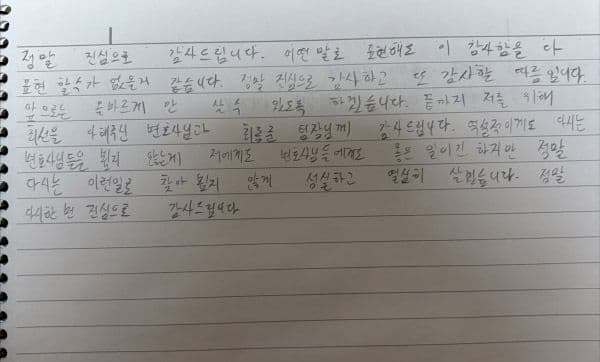 정말 진심으로 감사드립니다. 어떤 말로 표현해도 이 감사함을 다
표현 할수가 없을거 같습니다. 정말 진심으로 감사하고 또 감사할 따름입니다.
앞으로는 올바르게 만 살수 있도록 하겠습니다. 끝까지 저를 위해
최선을 다해주신 변호사님과 팀장님께 감사드립니다. 역설적이게도 다시는
변호사님들을 뵙지 않는게 저에게도 변호사님들에게도 좋은 일이긴 하지만 정말
다시는 이런일로 찾아 뵙지 않게 성실하고 열심히 살겠습니다. 정말
다시한번 진심으로 감사드립니다